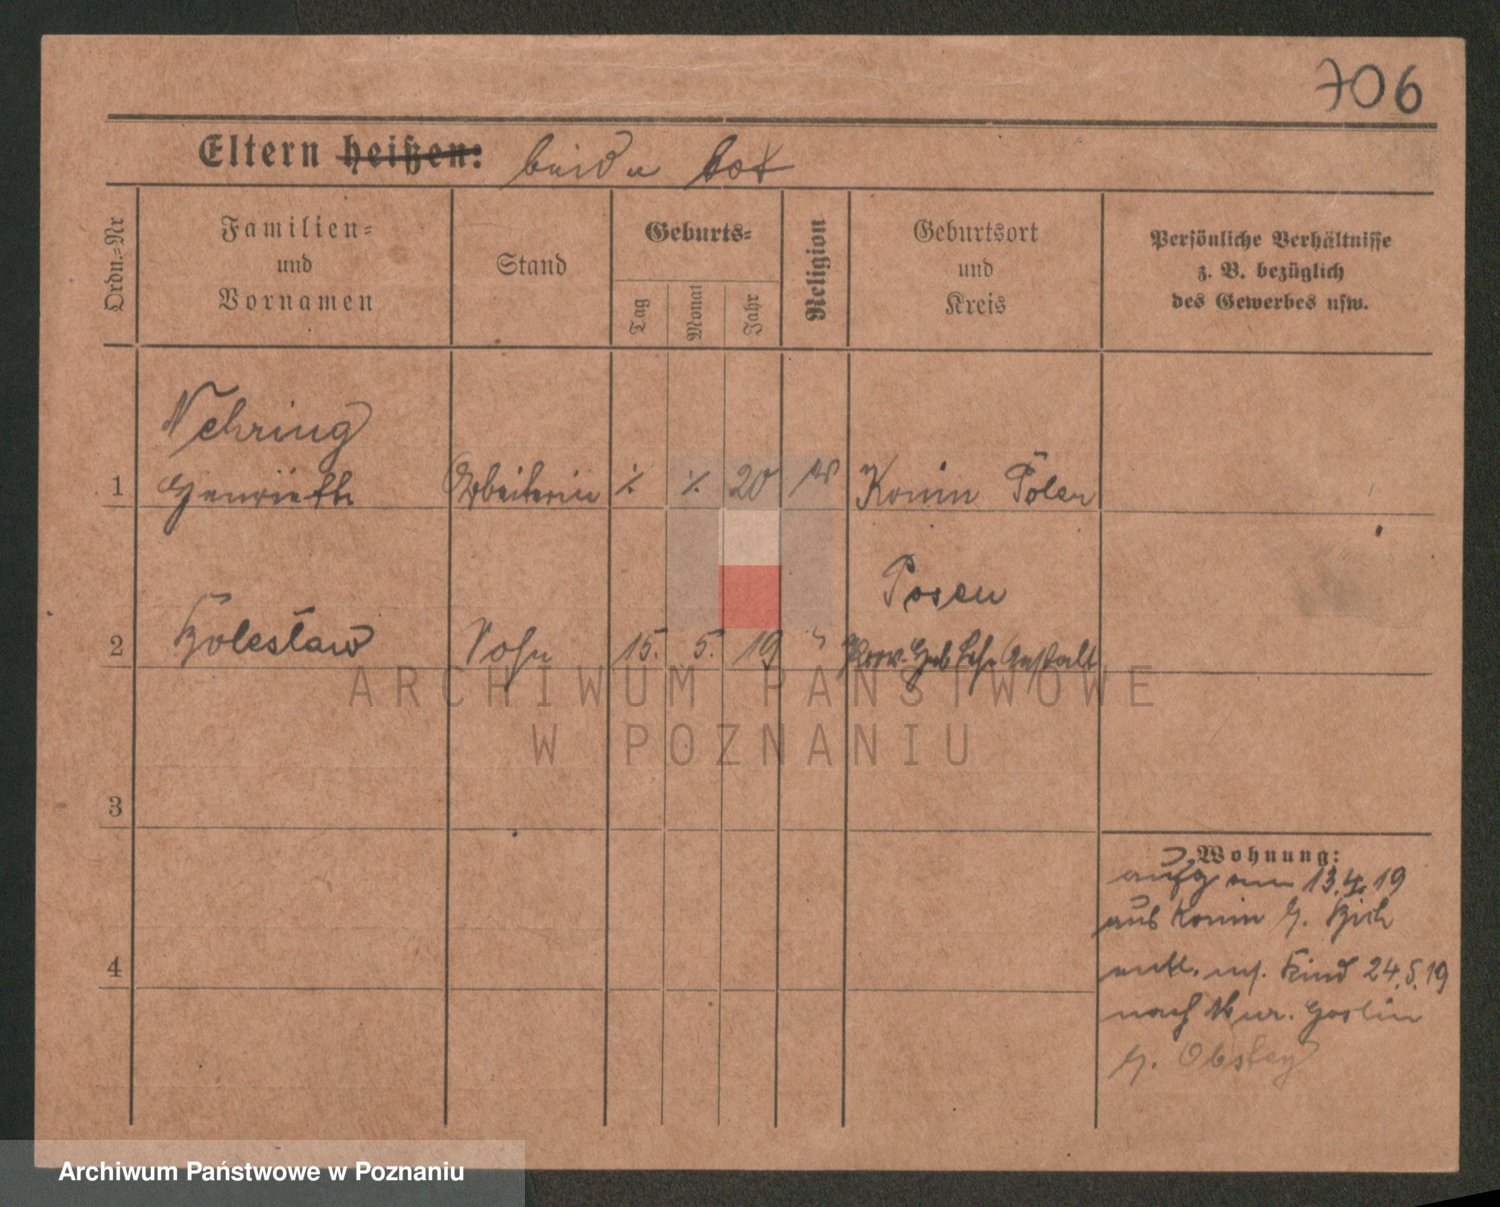 706
Eltern heißen: beide tot
Ordn.=Nr
Familien=
und
Vornamen
Stand
Geburts=
Tag
Monat
Jahr
Religion
Geburtsort
und
Kreis
Persönliche Verhältnisse
z. B. bezüglich
des Gewerbes usw.
Nehring
1 Henriette Arbeiterin ·/. ·/. 20 Konin Polen
Posen
2 Bolesław Sohn 15. 5. 19 " Prov. Heb. Lehr Anstalt
ARCHIWUM PAŃSTWOWE
W POZNANIU
3
Wohnung:
aufg am 13.4.19
aus Konin Kr.
4
entl. m. Kind 24.5.19
nach Mur. Goslin
Kr. Obornik
Archiwum Państwowe w Poznaniu